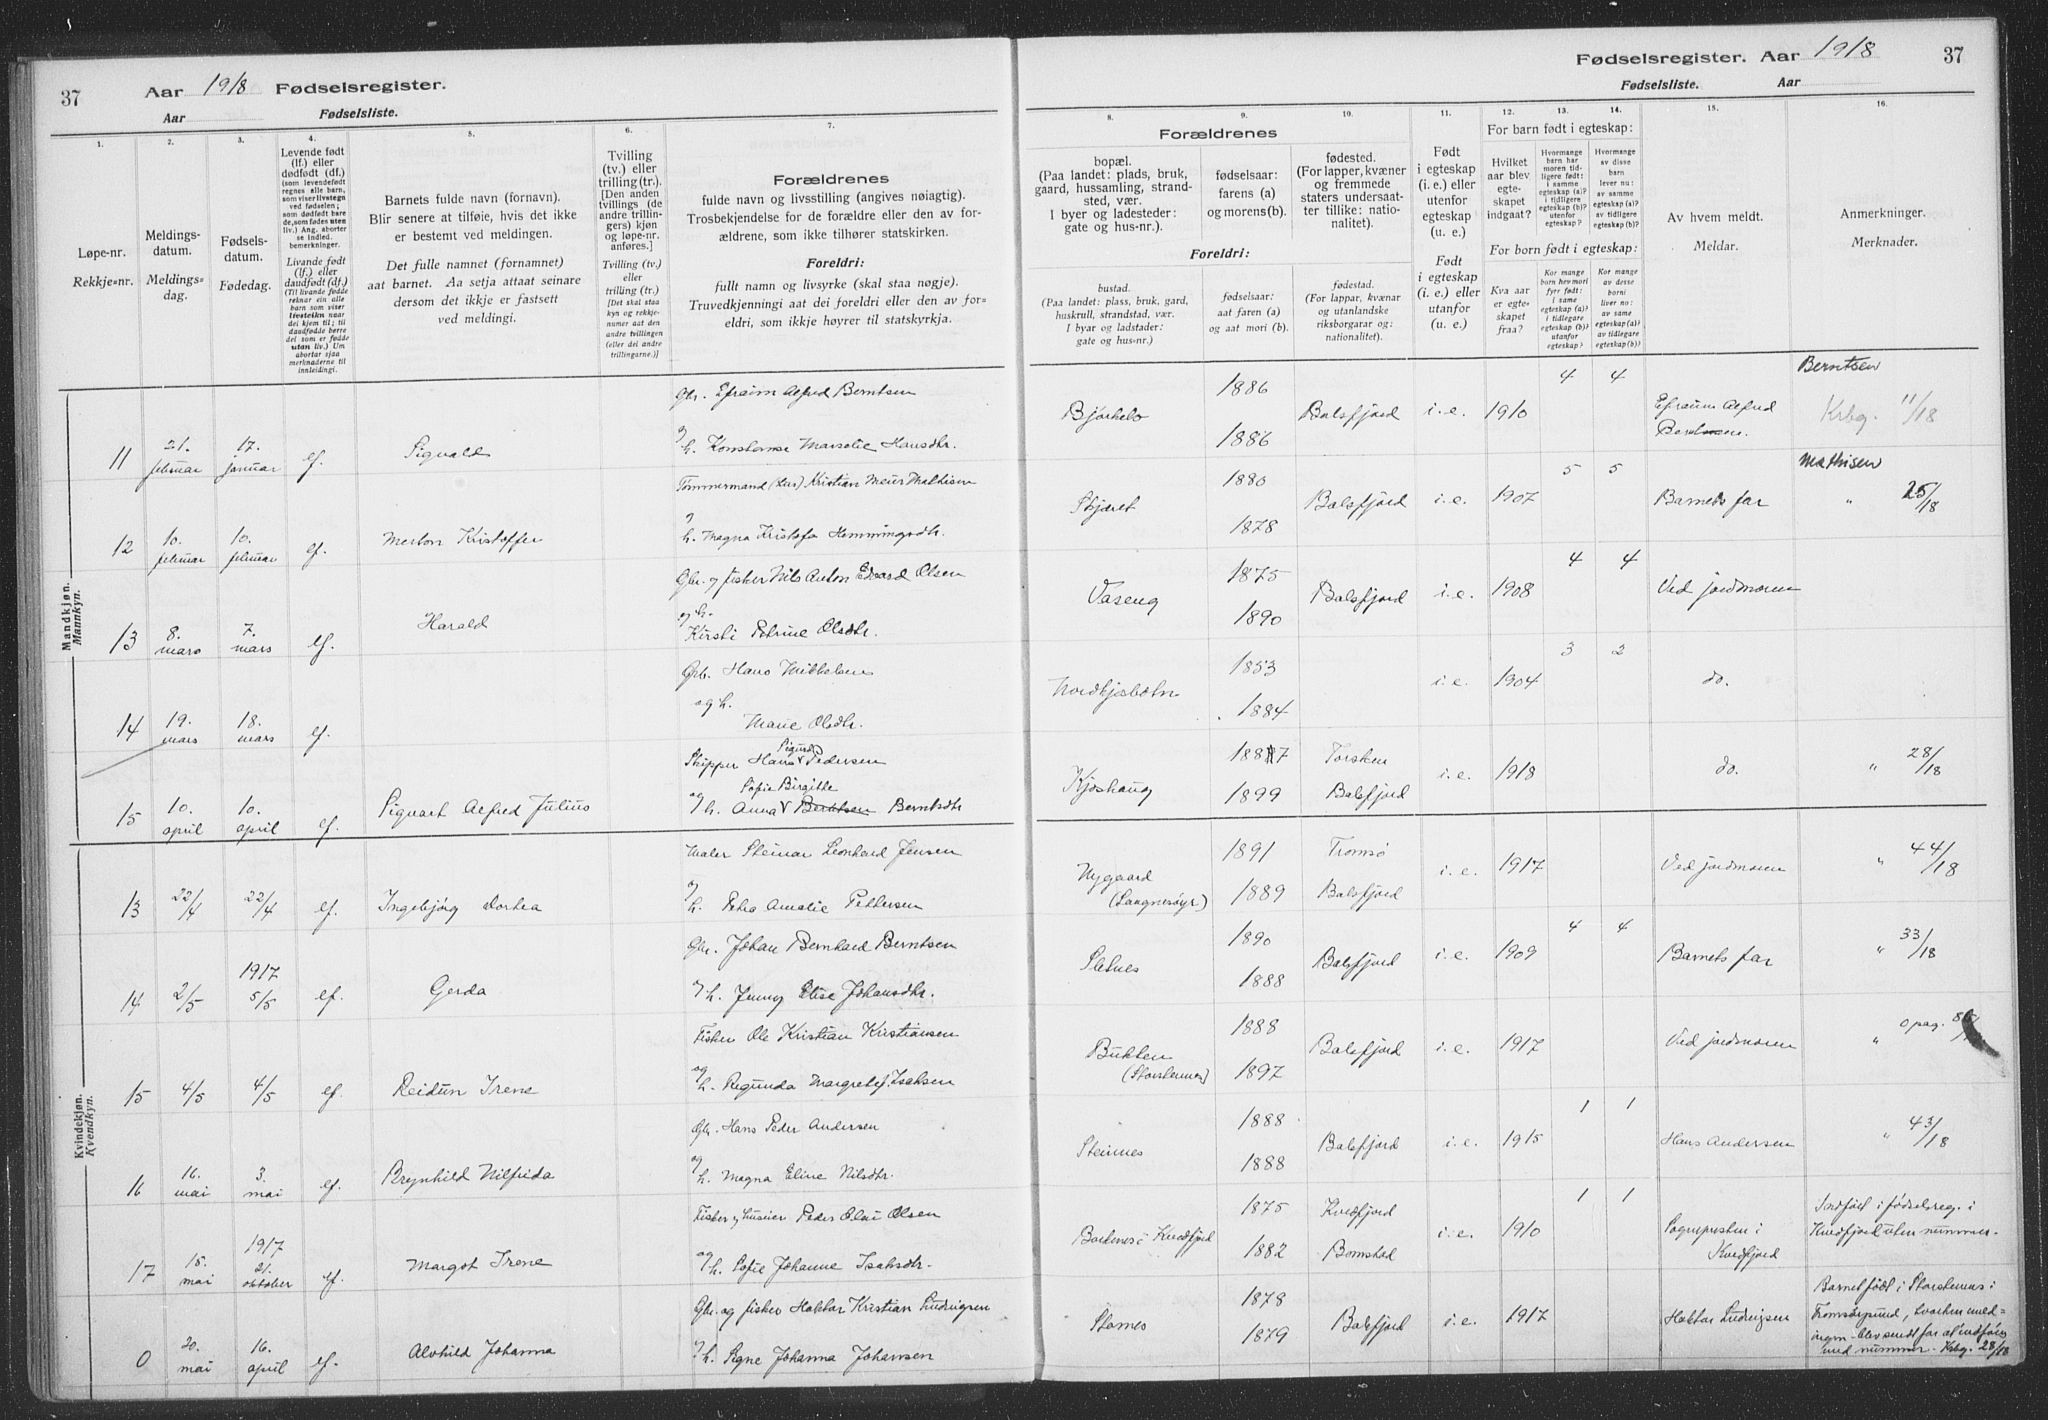 37
Aar 1918 Fødselsregister.
Aar Fødselsliste.
1.
Løpe-nr.
Rekkje=nr.
2.
Meldings-
datum.
Meldings=
dag.
3.
Fødsels-
datum.
Fødedag.
4.
Levende født
(lf.) eller
dødfødt (df.)
(som levendefødt
regnes alle barn,
som viser livstegn
ved fødselen;
som dødfødt bare
de, som fødes uten
liv.) Ang. aborter
se indled.
bemerkninger.
Livande født
(lf.) eller
daudfødt (df.)
(Til livande fødde
reknar ein alle
barn som viser
livsteikn naar
dei kjem til; til
daudfødde berre
dei som er fødde
utan liv.) Um
abortar sjaa
merknaderne til
innleidingi.
5.
Barnets fulde navn (fornavn).
Blir senere at tilføie, hvis det ikke
er bestemt ved meldingen.
Det fulle namnet (fornamnet)
aat barnet. Aa setja attaat seinare
dersom det ikkje er fastsett
ved meldingi.
6.
Tvilling
(tv.) eller
trilling (tr.).
[Den anden
tvillings (de
andre trillin-
gers) kjøn
og løpe-nr.
anføres.]
Tvilling (tv.)
eller
trilling (tr.)
[Det skal staa
kyn og rekkje-
numer aat den
andre tvillingen
(eller dei andre
trillingarne.)]
7.
Forældrenes
fulde navn og livsstilling (angives nøiagtig).
Trosbekjendelse for de forældre eller den av for-
ældrene, som ikke tilhører statskirken.
Foreldri:
fullt namn og livsyrke (skal staa nøgje).
Truvedkjenningi aat dei foreldri eller den av for=
eldri, som ikkje høyrer til statskyrkja.
Mandkjøn.
Mannkyn.
Gbr. Efraim Alfred Berntsen
11 21. februar 17. januar lf. Sigvald
og h. Konstanse Marselie Hansdtr.
Tømmermand (Lus) Kristian Meier Mathisen
12 10. februar 10. februar lf. Merton Kristoffer
og h. Magna Kristofa Hemmingsdtr.
Gbr. og fisker Nils Anton Edvard Olsen
13 8. mars 7. mars lf. Harald
og h.
Kirsti Petrine Olsdtr.
Gbr. Hans Mikkelsen
og h.
14 19. mars 18. mars lf.
Marie Olsdtr.
Sigurd
Skipper Hans Pedersen
Sofie Birgitte
15 10. april 10. april lf. Sigvart Alfred Julius
og h. Anna Berntsen Berntsdtr
Kvindekjøn.
Kvendkyn.
Maler Steinar Leonhard Jensen
13 22/4 22/4 lf. Ingebjørg Dortea
og h. Petra Amalie Pettersen
Gbr. Johan Bernhard Berntsen
14 2/5 1917 5/5 lf. Gerda
og h. Jenny Elise Johansdtr.
Fisker Ole Kristian Kristiansen
15 4/5 4/5 lf. Reidun Irene
og h. Regunda Margrete Isaksen
Gbr. Hans Peder Andersen
16 16. mai 3. mai lf. Brynhild Nilfrida
og h. Magna Eline Nilsdtr.
Fisker og huseier Peder Olai Olsen
17 15. mai 1917 21. oktober lf. Margot Irene
og h. Sofie Johanne Isaksdtr.
Gbr. og fisker Hektor Kristian Ludvigsen
0 20. mai 16. april lf. Alvhild Johanna
og h. Signe Johanna Johansen
Fødselsregister. Aar 1918
37
Fødselsliste. Aar
8.
Forældrenes
bopæl.
(Paa landet: plads, bruk,
gaard, hussamling, strand-
sted, vær.
I byer og ladesteder:
gate og hus-nr.).
Foreldri:
bustad.
(Paa landet: plass, bruk, gard,
huskrull, strandstad, vær.
I byar og ladstader:
gate og hus-nr.)
9.
fødselsaar:
farens (a)
og morens (b).
fødselsaar:
aat faren (a)
og aat mori (b).
10.
fødested.
(For lapper, kvæner
og fremmede
staters undersaat-
ter tillike: natio-
nalitet).
fødestad.
(For lappar, kvænar
og utanlandske
riksborgarar og:
nationalitet).
11.
Født
i egteskap
(i. e.) eller
utenfor
egteskap
(u. e.)
Født
i egteskap
(i. e.) eller
utanfor
(u. e.)
12.
For barn født i egteskap:
Hvilket
aar blev
egte-
skapet
indgaat?
For born født i egteskap:
Kva aar
er egte-
skapet
fraa?
13.
Hvormange
barn har
moren tid-
ligere født:
i samme
egteskap (a)?
i tidligere
egteskap (b)?
utenfor
egteskap?
Kor mange
born hev mori
fyrr født:
i same
egteskap (a)?
i tidlegare
egteskap (b)?
utanfor
egteskap?
14.
Hvormange
av disse
barn
lever nu:
av samme
egteskap (a)?
av tidligere
egteskap (b)?
Kor mange
av desse
borni
liver no:
av same
egteskap (a)?
av tidlegare
egteskap (b)?
15.
Av hvem meldt.
Meldar.
16.
Anmerkninger.
Merknader.
Bjørkebo 1886 1886 Balsfjord i. e. 1910 4 4 Efraim Alfred Berntsen. Berntsen Krbg. 11/18
Skjæret 1880 1878 Balsfjord i. e. 1907 5 5 Barnets far Mathisen " 25/18
Vaseng 1875 1890 Balsfjord i. e. 1908 4 4 Ved jordmoren
Nordkjosbotn 1853 1884 i. e. 1904 3 2 do.
Kjoshaug 1887 1899 Torsken Balsfjord i. e. 1918 do. " 28/18
Nygaard (Laugnesøyr) 1891 1889 Tromsø Balsfjord i. e. 1917 Ved jordmoren " 44/18
Sletnes 1890 1888 Balsfjord i. e. 1909 4 4 Barnets far " 33/18
Bukten (Storstennes) 1888 1897 Balsfjord i. e. 1917 Ved jordmoren " o pag.
Steinnes 1888 1888 Balsfjord i. e. 1915 1 1 Hans Andersen " 43/18
Borkenes i Kvedfjord 1875 1882 Kvedfjord i. e. 1910 1 1 Sognepresten i Kvedfjord
Indført i fødselsreg. i
Kvedfjord uten nummer.
Stornes 1878 1879 Balsfjord i. e. 1917 Hektor Ludvigsen
Barnet født i Storstennes i
Tromsøysund, hvorhen meld=
ingen blev sendt for at indføres
med nummer. Krbg. 28/18